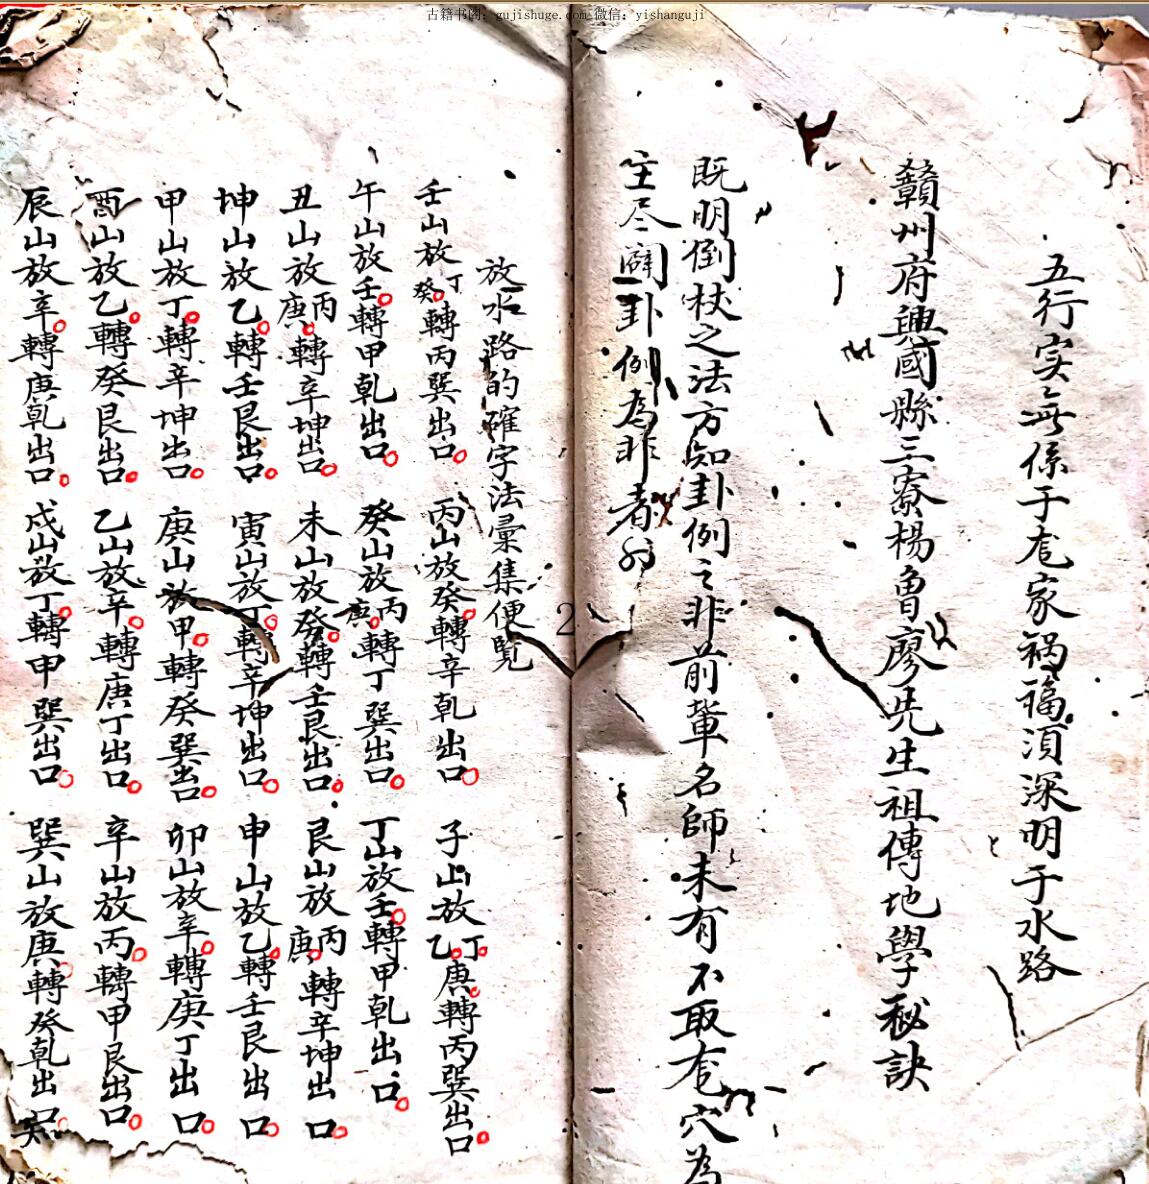 古籍书阁：gujishuge.com 微信：yishanguji
五行实无係于宅家禍福須深明于水路
贛州府興國縣三寮楊曾廖先生祖傳地學秘訣
既明倒杖之法方知卦例之非前輩名師未有不取宅穴為
主尽闢卦例為非者
2
放水路的確字法彙集便覽
壬山放丁癸轉丙巽出口 丙山放癸轉辛乾出口 子山放丁乙庚轉丙巽出口
午山放壬轉甲乾出口 癸山放丙庚轉丁巽出口 丁山放壬轉甲乾出口
丑山放丙庚轉辛坤出口 未山放癸轉壬艮出口 艮山放丙庚轉辛坤出口
坤山放乙轉壬艮出口 寅山放丁轉辛坤出口 申山放乙轉壬艮出口
甲山放丁轉辛坤出口 庚山放甲轉癸巽出口 卯山放辛轉庚丁出口
酉山放乙轉癸艮出口 乙山放辛轉庚丁出口 辛山放丙轉甲艮出口
辰山放辛轉庚乾出口 戌山放丁轉甲巽出口 巽山放庚轉癸乾出口